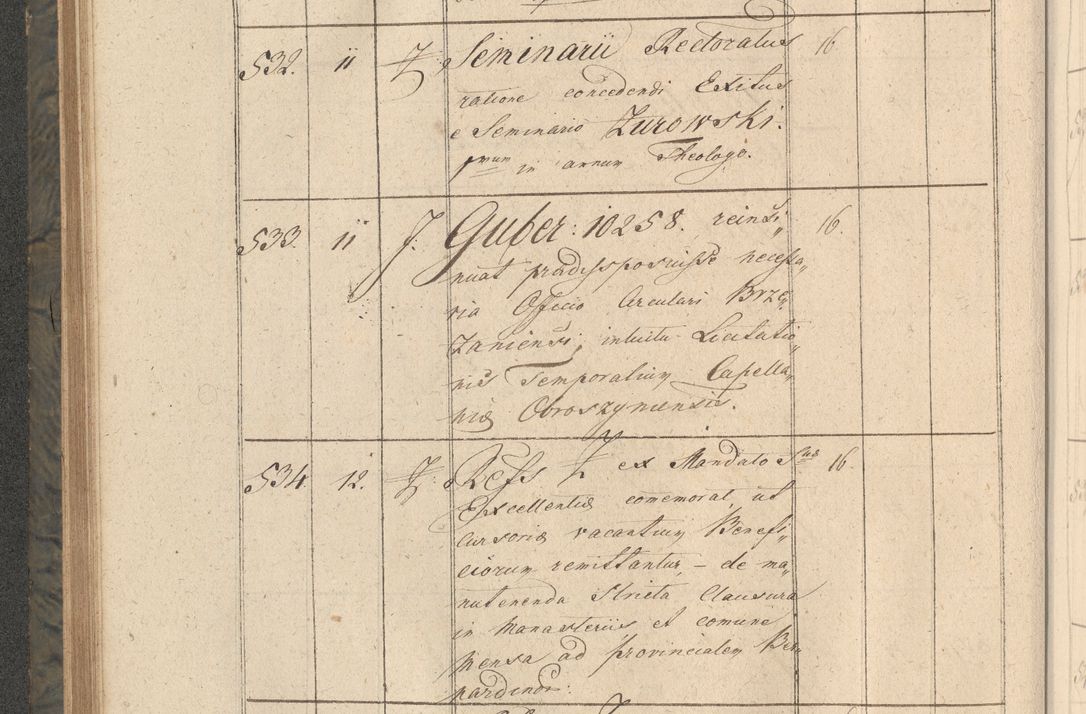 532. 11 Z Seminarii Rectoratus 16
ratione concedendi Exitus
e Seminario Zurowski.
1mum in annum Theologo.
533. 11 J. Guber: 10258. reinsi„ 16.
nuat prædisposuisse necessa„
ria Officio Circulari Brze„
zaniensi, intuitu Licitatio„
nis Temporalium Capella„
niæ Obroszynensis.
534. 12. Z. Refs Z ex Mandato Suæ 16.
Excellentiæ comemorat, ut
Cursoriæ vacantium Benefi„
ciorum remittantur, – de ma„
nutenenda stricta Clausura
in Monasteriis et comune
Mensa ad provincialem Ber„
nardinor: